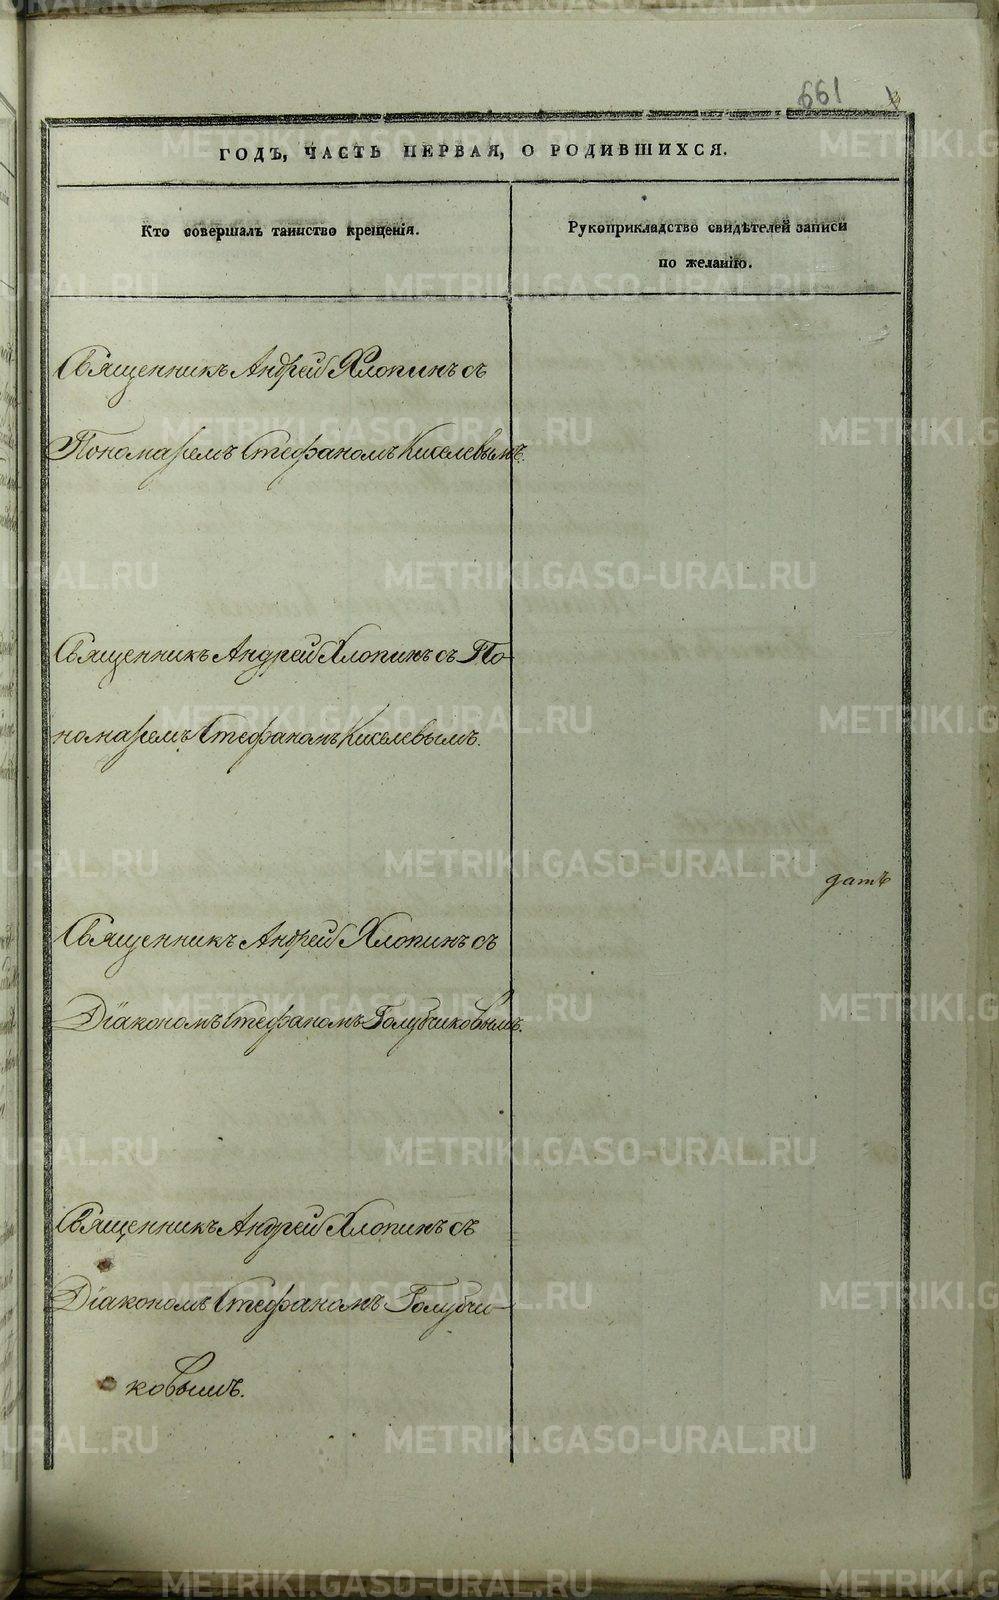 661
ГОДЪ, ЧАСТЬ ПЕРВАЯ, О РОДИВШИХСЯ.
Кто совершалъ таинство крещенія.
Рукоприкладство свидѣтелей записи
по желанію.
Священникъ Андрей Хлопинъ съ
Пономаремъ Стефаномъ Киселевымъ.
Священникъ Андрей Хлопинъ съ По-
номаремъ Стефаномъ Киселевымъ.
датѣ
Священникъ Андрей Хлопинъ съ
Діакономъ Стефаномъ Голубчиковымъ.
Священникъ Андрей Хлопинъ съ
Діакономъ Стефаномъ Голубчи-
ковымъ.
METRIKI.GASO-URAL.RU